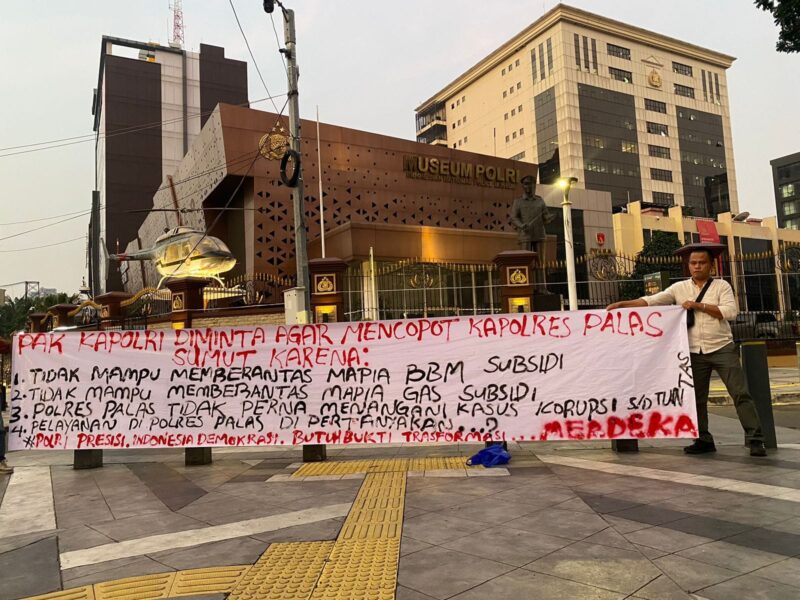 MUSEUM POLRI
PAK KAPOLRI DIMINTA AGAR MENCOPOT KAPOLRES PALAS
SUMUT KARENA:
1. TIDAK MAMPU MEMBERANTAS MAPIA BBM SUBSIDI
2. TIDAK MAMPU MEMBERANTAS MAPIA GAS SUBSIDI
3. POLRES PALAS TIDAK PERNA MENANGANI KASUS KORUPSI S/D TUNTAS
4. PELAYANAN DI POLRES PALAS DI PERTANYAKAN...?
*POLRI PRESISI. INDONESIA DEMOKRASI. BUTUH BUKTI TRASFORMASI... MERDEKA